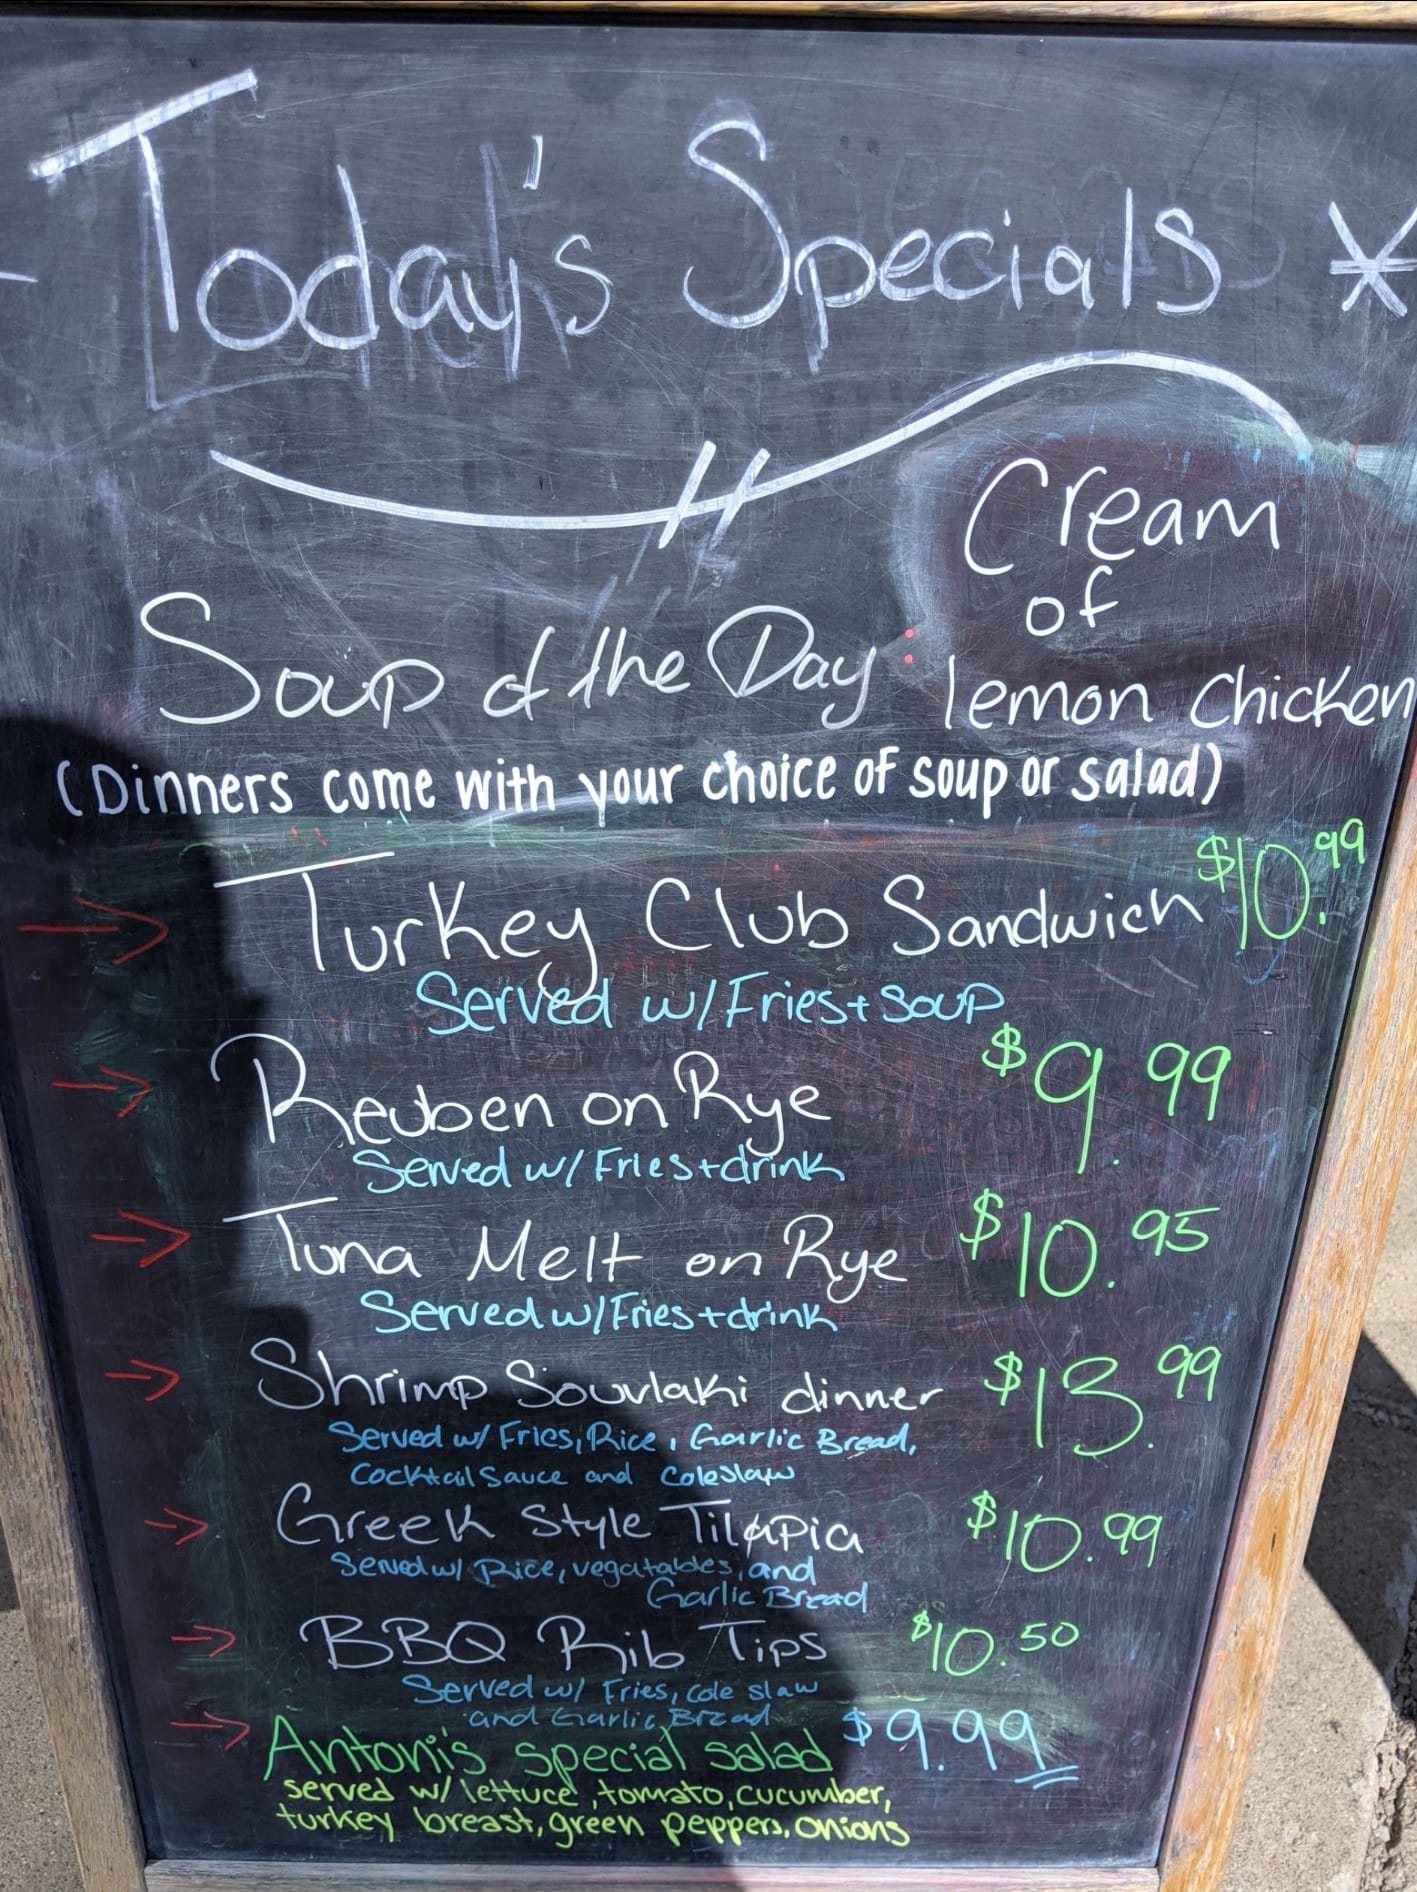 Today's Specials *
Cream
of
Soup of the Day: lemon chicken
(Dinners come with your choice of soup or salad)
Turkey Club Sandwich $10.99
Served w/ Fries + soup
Reuben on Rye $9.99
Served w/ Fries + drink
Tuna Melt on Rye $10.95
Served w/ Fries + drink
Shrimp Souvlaki dinner $13.99
Served w/ Fries, Rice, Garlic Bread,
Cocktail Sauce and Coleslaw
Greek Style Tilapia $10.99
Served w/ Rice, vegatables, and
Garlic Bread
BBQ Rib Tips $10.50
Served w/ Fries, cole slaw
and Garlic Bread
Antoni's special salad $9.99
served w/ lettuce, tomato, cucumber,
turkey breast, green peppers, onions